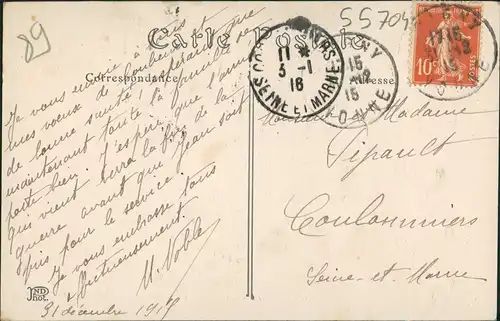 89
557042
Carte Postale
Correspondance
Adresse
Je vous envoie à tous
mes vœux de bonheur et
de bonne santé, espérant que
maintenant toute la famille se
porte bien. J'espère que l'année
qui vient verra la fin de la
guerre avant que Jean soit
pris pour le service.
Je vous embrasse tous
affectueusement
M. Noble
31 décembre 191
ND
Phot.
SEINE ET MARNE
11 *
3 - 1
16
NY
15
15
YONNE
10
POSTES
Monsieur Madame
Pipault
Coulommiers
Seine-et-Marne